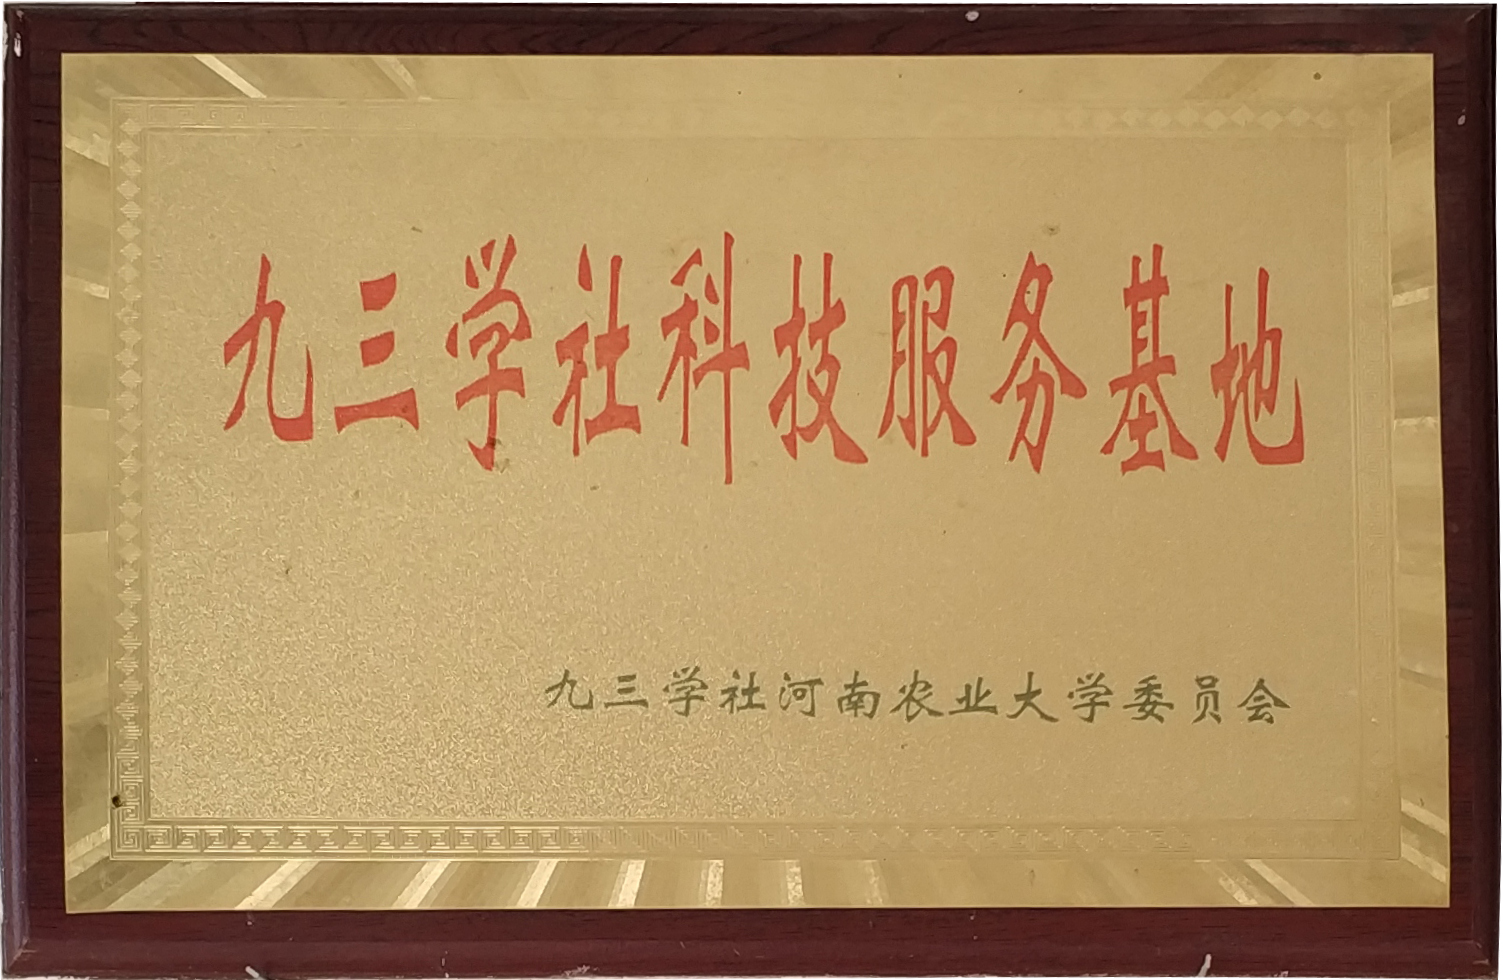 九三学社科技服务基地
九三学社河南农业大学委员会